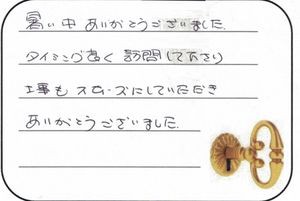 暑い中 ありがとうございました
タイミングあく 訪問して下さり
工事も スムーズにしていただき
ありがとうございました